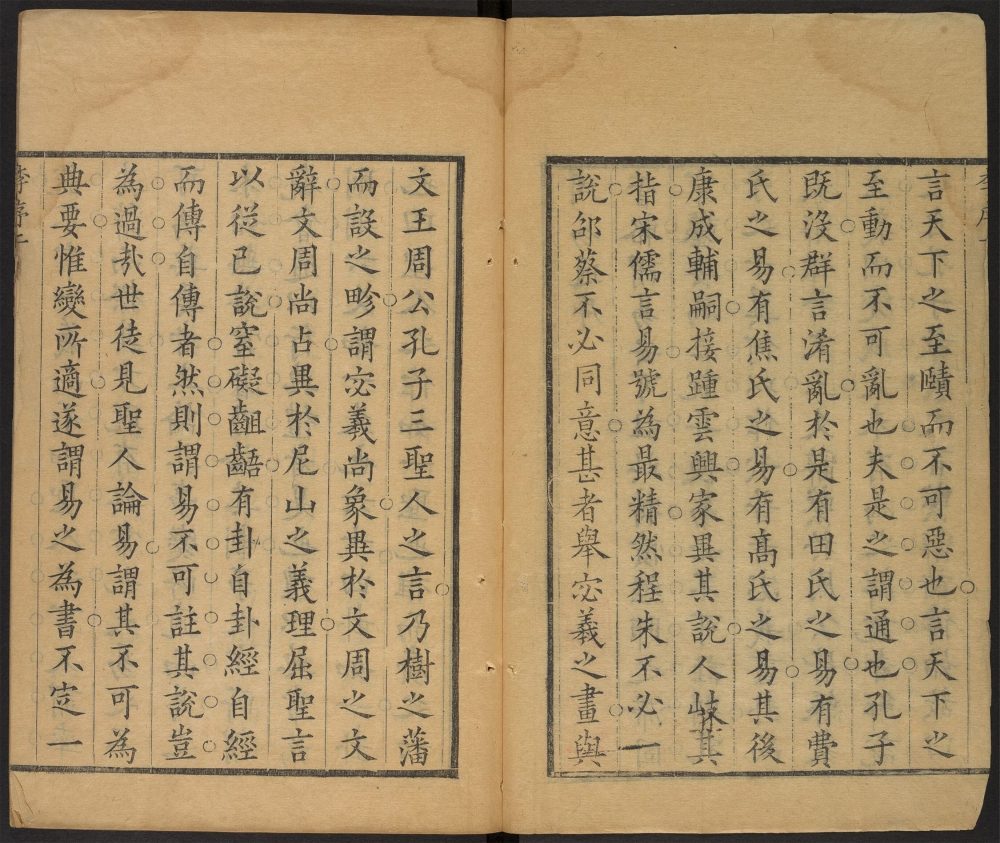 言天下之至賾而不可惡也言天下之
至動而不可亂也夫是之謂通也孔子
既沒群言淆亂於是有田氏之易有費
氏之易有焦氏之易有高氏之易其後
康成輔嗣接踵雲興家異其說人岐其
指宋儒言易號為最精然程朱不必一
說邵蔡不必同意甚者舉宓羲之畫與
文王周公孔子三聖人之言乃樹之藩
而設之畛謂宓羲尚象異於文周之文
辭文周尚占異於尼山之義理屈聖言
以從已說窒礙齟齬有卦自卦經自經
而傳自傳者然則謂易不可註其說豈
為過㢤世徒見聖人論易謂其不可為
典要惟變所適遂謂易之為書不定一